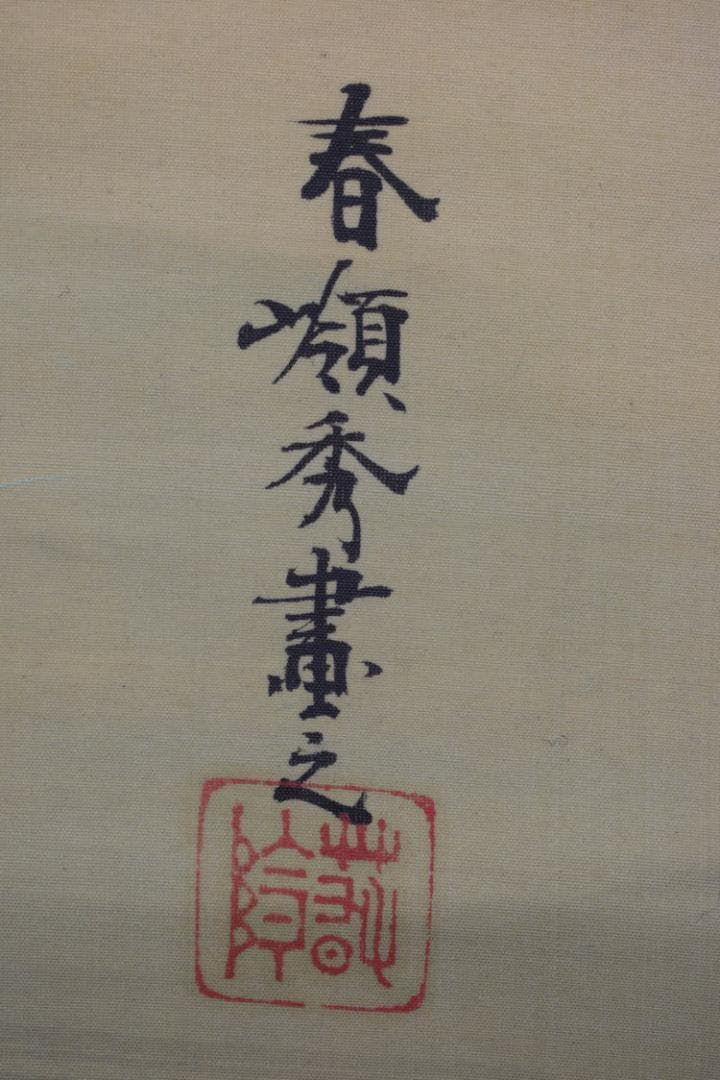 春嶺秀畫之